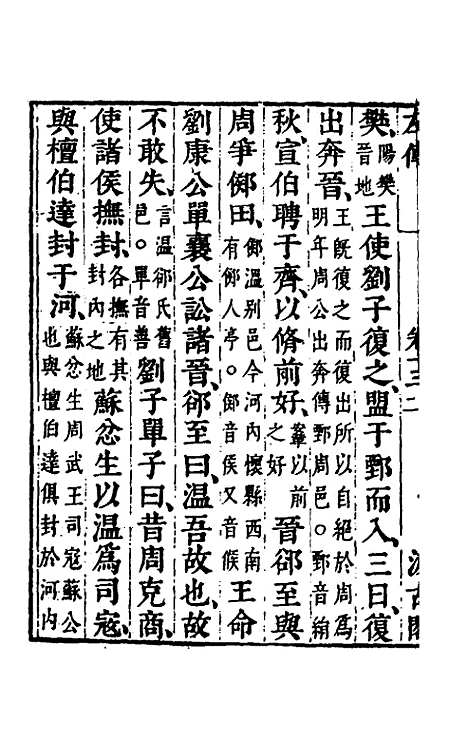 樊陽樊晉地王使劉子復之盟于鄄而入三日復
出奔晉王既復之而復出所以自絕於周為明年周公出奔傳鄄周邑○鄄音絹
秋宣伯聘于齊以脩前好鞌以前之好晉郤至與
周爭鄇田鄇溫別邑今河內懷縣西南有鄇人亭○鄇音侯又音候王命
劉康公單襄公訟諸晉郤至曰溫吾故也故
不敢失言溫郤氏舊邑○單音善劉子單子曰昔周克商
使諸侯撫封各撫有其封內之地蘇忿生以溫為司寇
與檀伯達封于河蘇忿生周武王司寇蘇公也與檀伯達俱封於河內